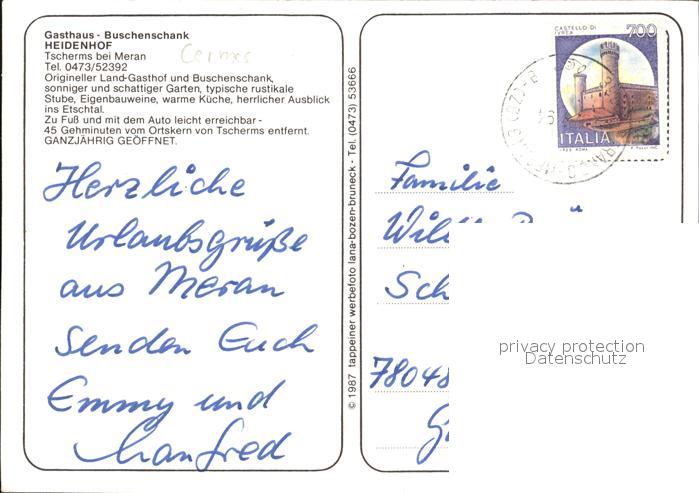 Gasthaus - Buschenschank
HEIDENHOF
Tscherms bei Meran
Tel. 0473/52392
Origineller Land-Gasthof und Buschenschank,
sonniger und schattiger Garten, typische rustikale
Stube, Eigenbauweine, warme Küche, herrlicher Ausblick
ins Etschtal.
Zu Fuß und mit dem Auto leicht erreichbar -
45 Gehminuten vom Ortskern von Tscherms entfernt.
GANZJÄHRIG GEÖFFNET.
Cermes
Herzliche
Urlaubsgrüße
aus Meran
senden Euch
Emmy und
Manfred
© 1987 tappeiner werbefoto lana-bozen-bruneck - Tel. (0473) 53666
CASTELLO DI
IVREA
700
ITALIA
Familie
Sch
78048
privacy protection
Datenschutz